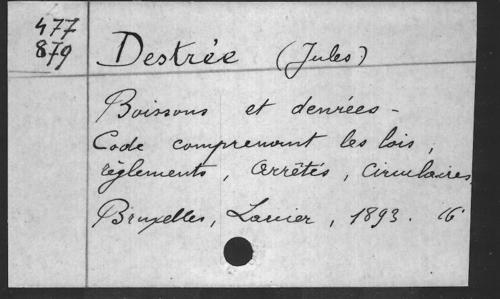 477
879
Destrée (Jules)
Boissons et denrées -
Code comprenant les lois,
règlements, arrêtés, circulaires
Bruxelles, Larcier, 1893.